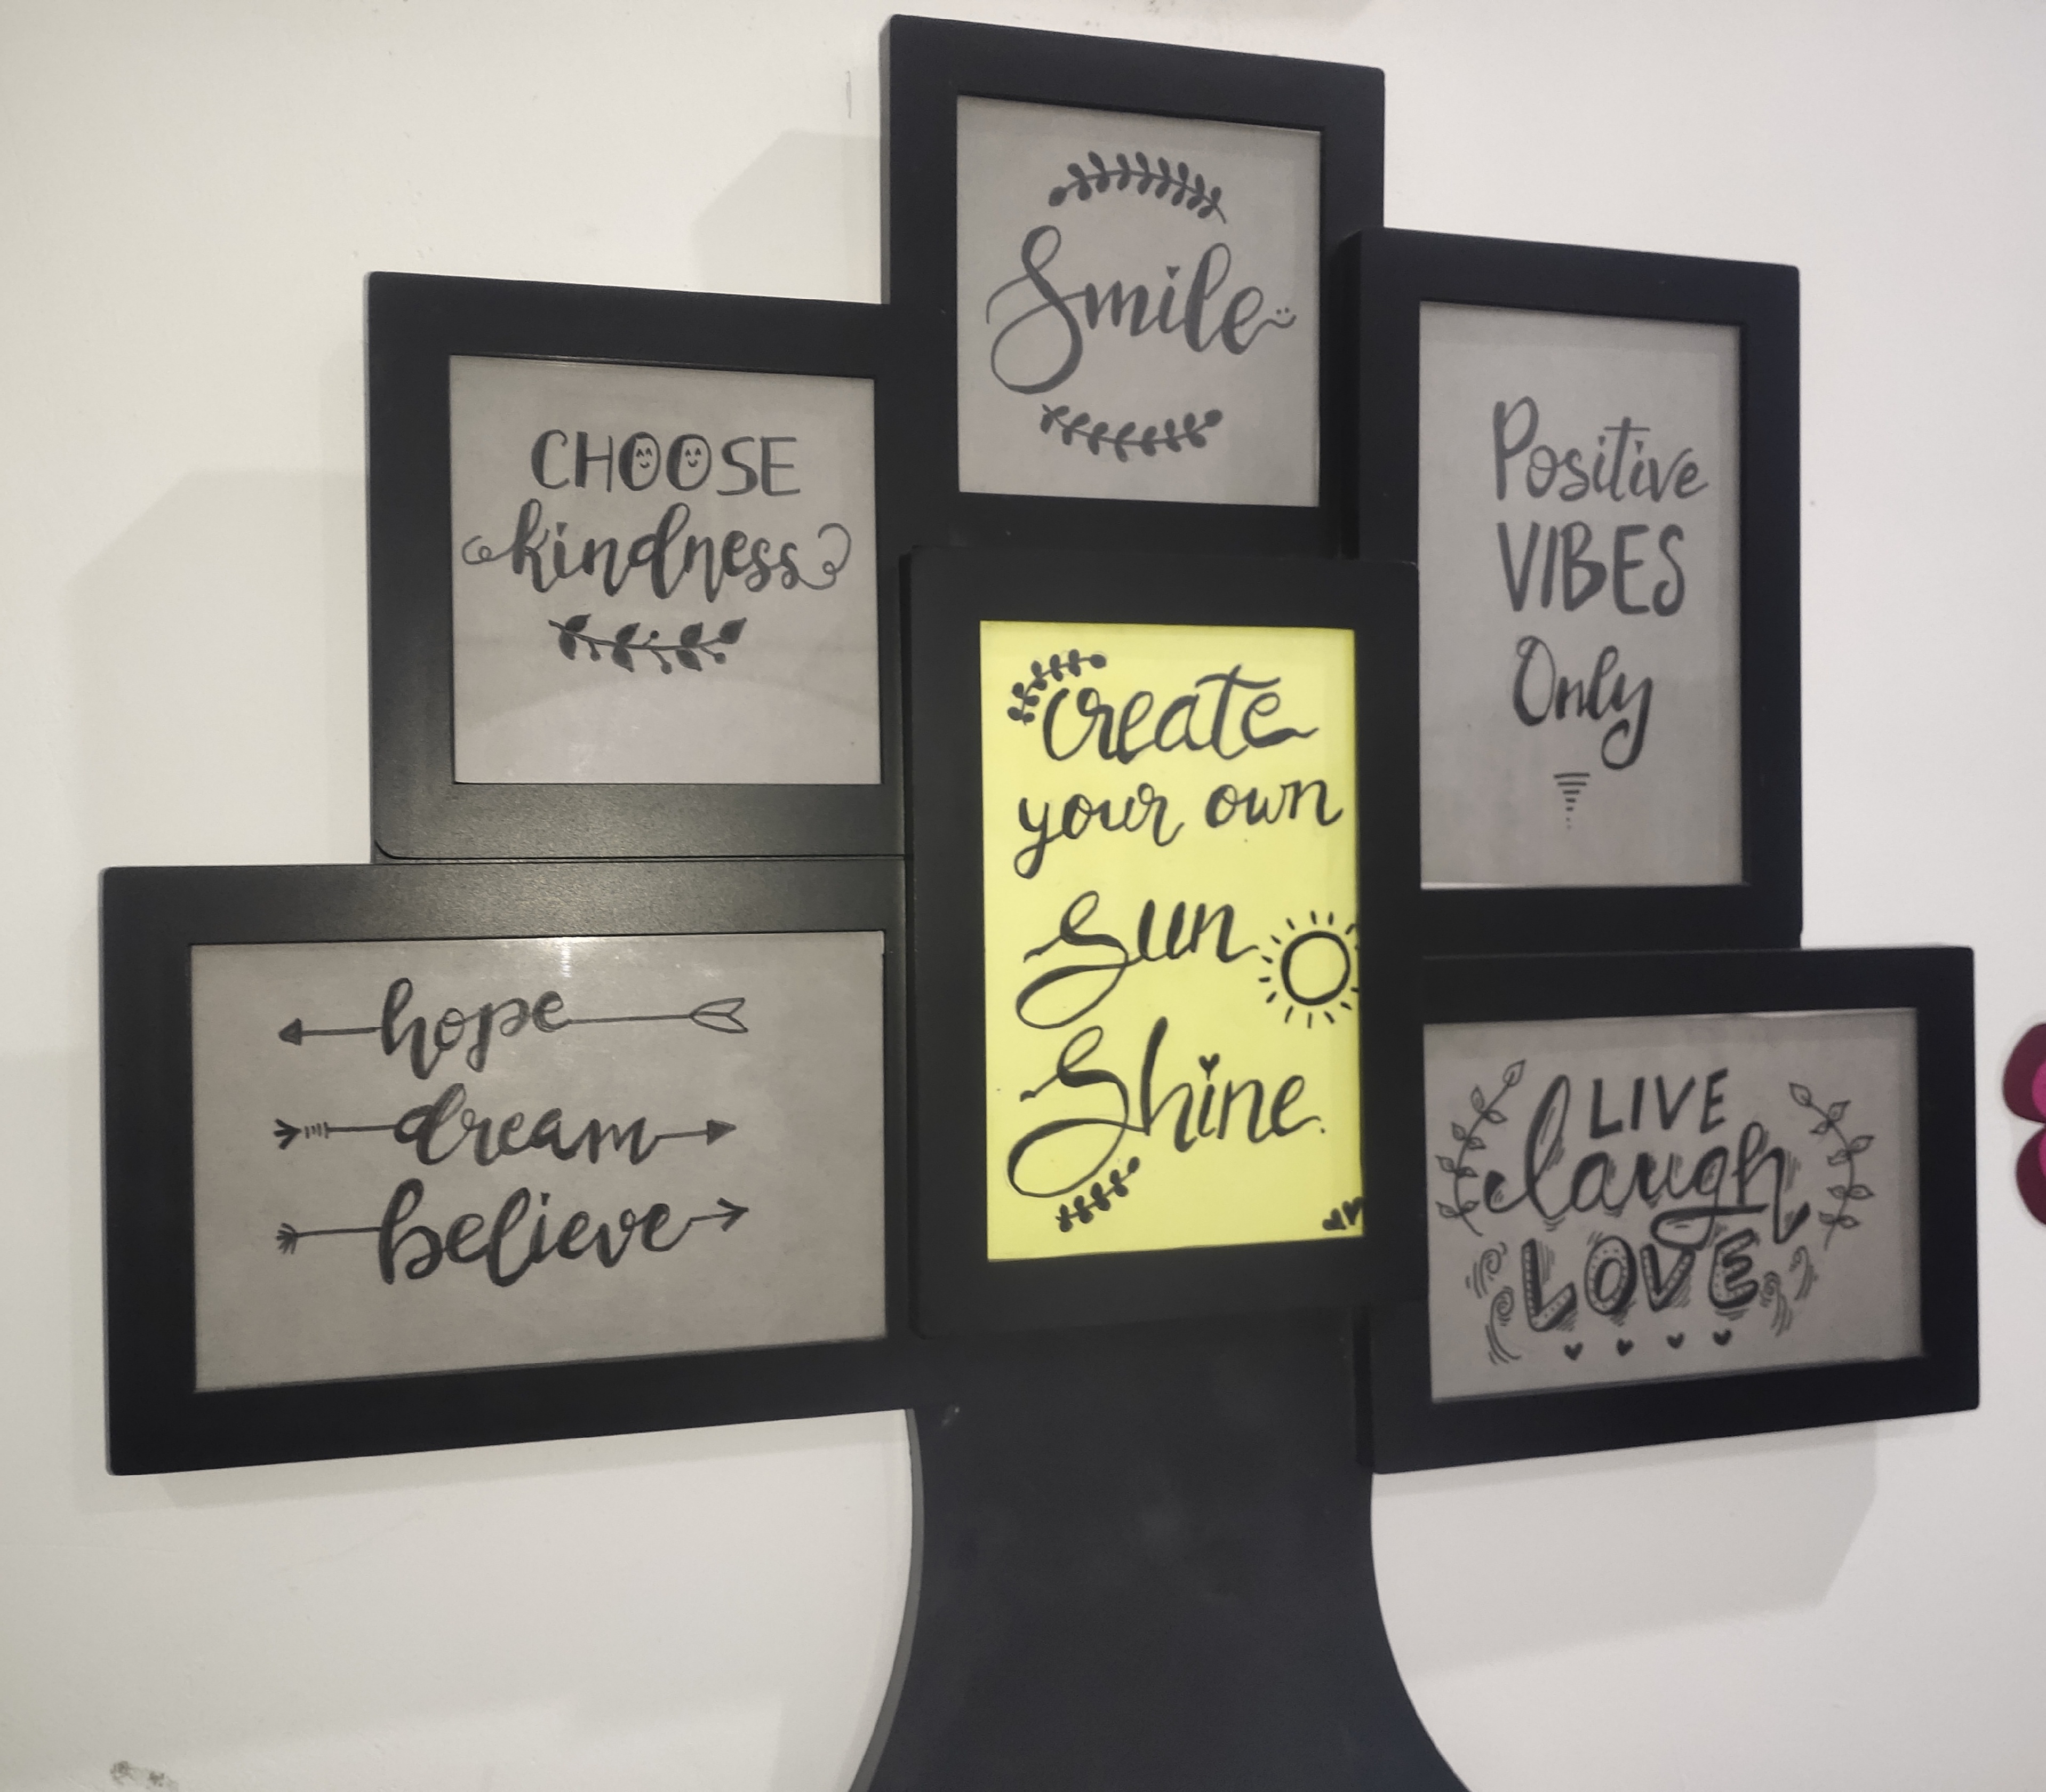 Smile
CHOOSE
kindness
Positive
VIBES
Only
Create
your own
Sun
Shine.
hope
dream
believe
LIVE
laugh
LOVE